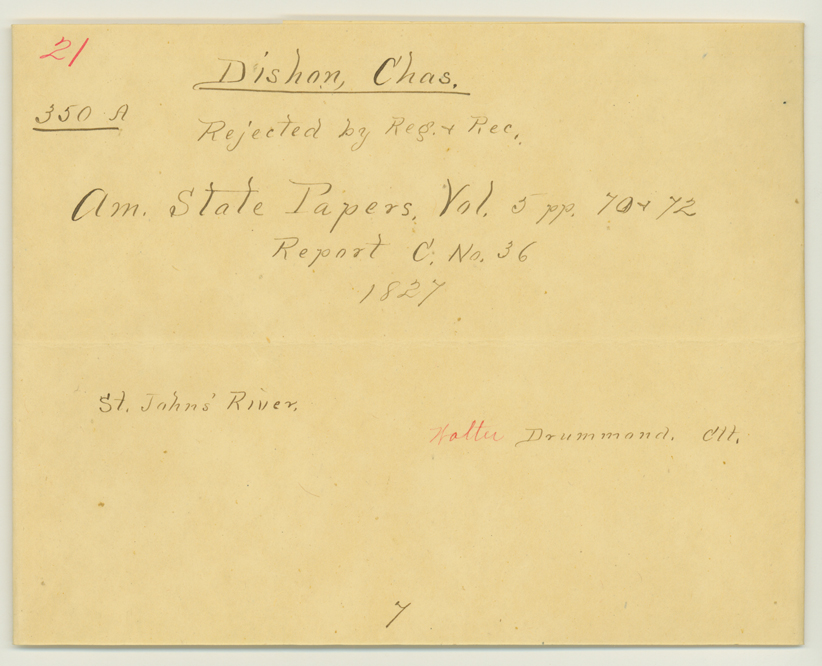 21
Dishon, Chas.
350 A
Rejected by Reg. & Rec.
Am. State Papers, Vol. 5 pp. 70 & 72
Report C. No. 36
1827
St. Johns' River.
Walter Drummond. Clt.
7